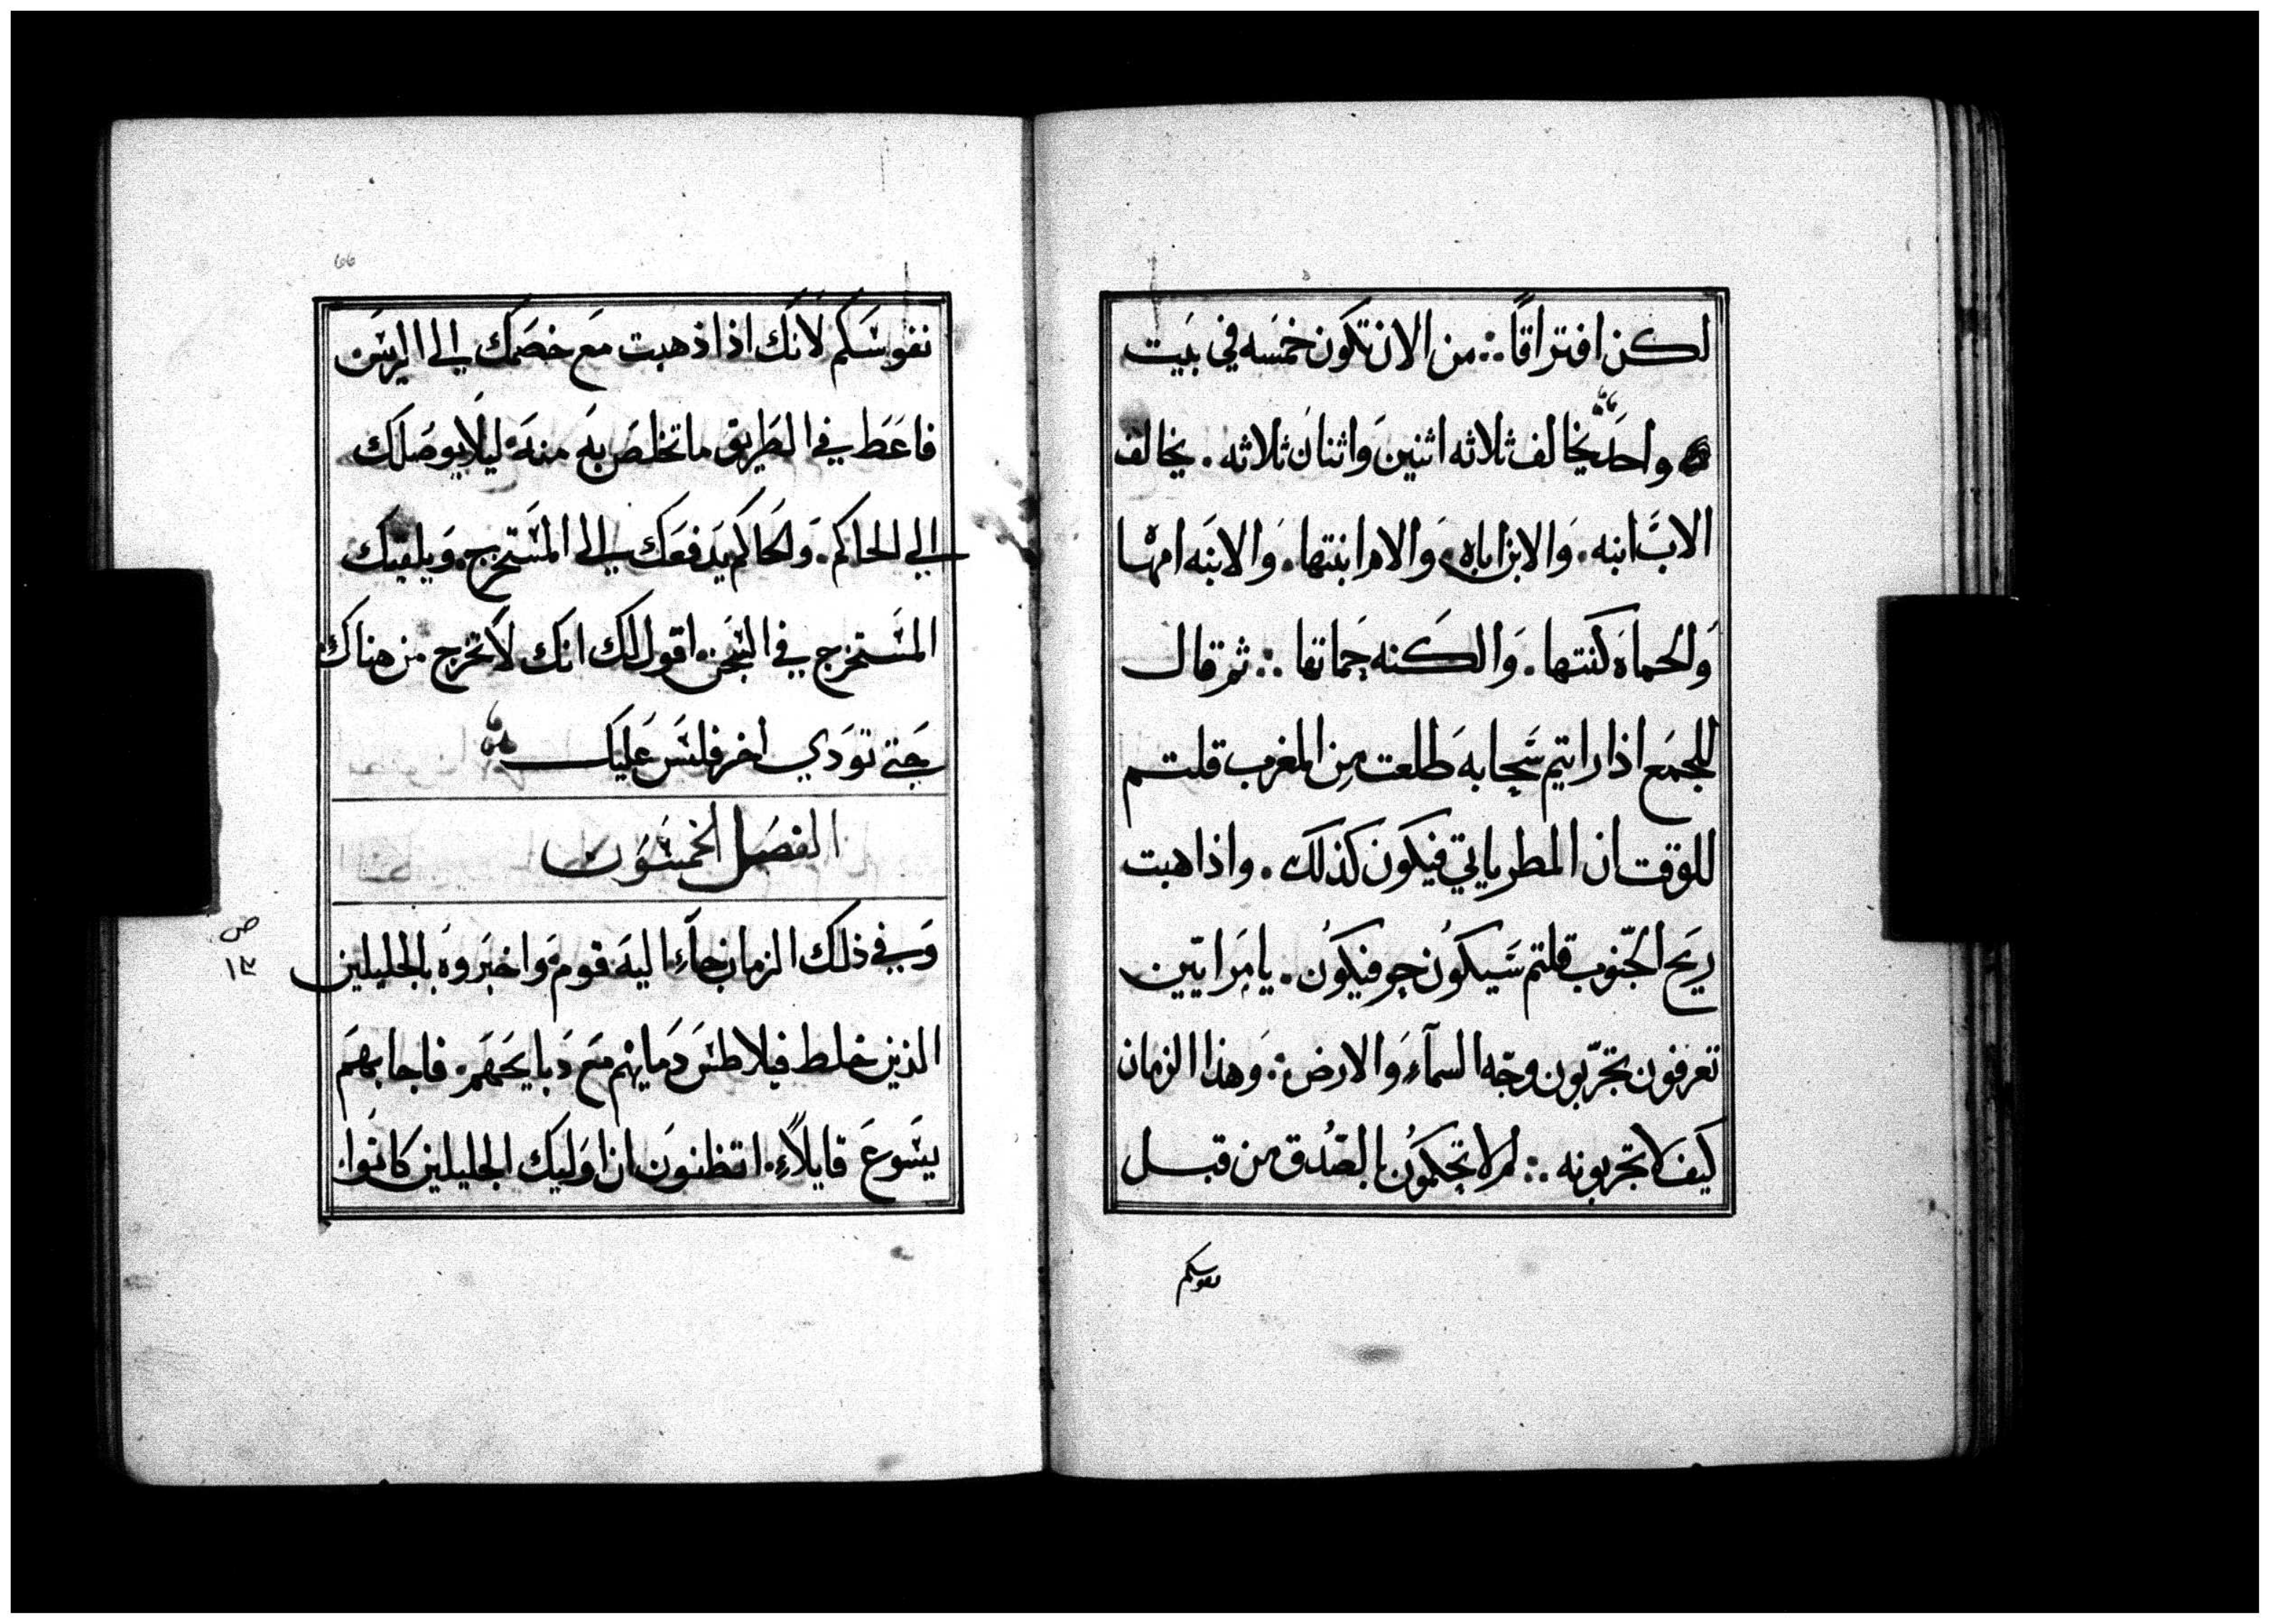 لكن افتراقًا ∴ من الان تكون خمسه في بيت
واحد يخالف ثلاثه اثنين واثنان ثلاثه . يخالف
الاب ابنه . والابن اباه . والام ابنتها . والابنه امها
والحماه كنتها . والكنه حماتها ∴ ثم قال
للجمع اذا رايتم سحابه طلعت من المغرب قلتم
للوقت ان المطر ياتي فيكون كذلك . واذا هبت
ريح الجنوب قلتم سيكون حر فيكون . يا مرايين
تعرفون تجربون وجه السمآء والارض ∴ وهذا الزمان
كيف لا تجربونه ∴ لم لا تحكمون بالصدق من قبل
نفوسكم
66
نفوسكم لانك اذا ذهبت مع خصمك الي الريس
فاعط في الطريق ما تخلص به منه ليلا يوصلك
الي الحاكم . والحاكم يدفعك الي المستخرج . ويلقيك
المستخرج في السجن . اقول لك انك لا تخرج من هناك
حتي تودي اخر فلس عليك
الفصل الخمسون
وفي ذلك الزمان جآء اليه قوم واخبروه بالجليلين
ص
١٣
الذين خلط فيلاطس دمايهم مع دبايحهم . فاجابهم
يسوع قايلاً . اتظنون ان اوليك الجليلين كانوا